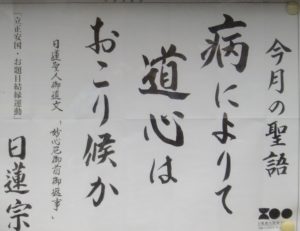 今月の聖語
病によりて
道心は
おこり候か
日蓮聖人御遺文『妙心尼御前御返事』
[立正安国・お題目結縁運動]
日蓮宗